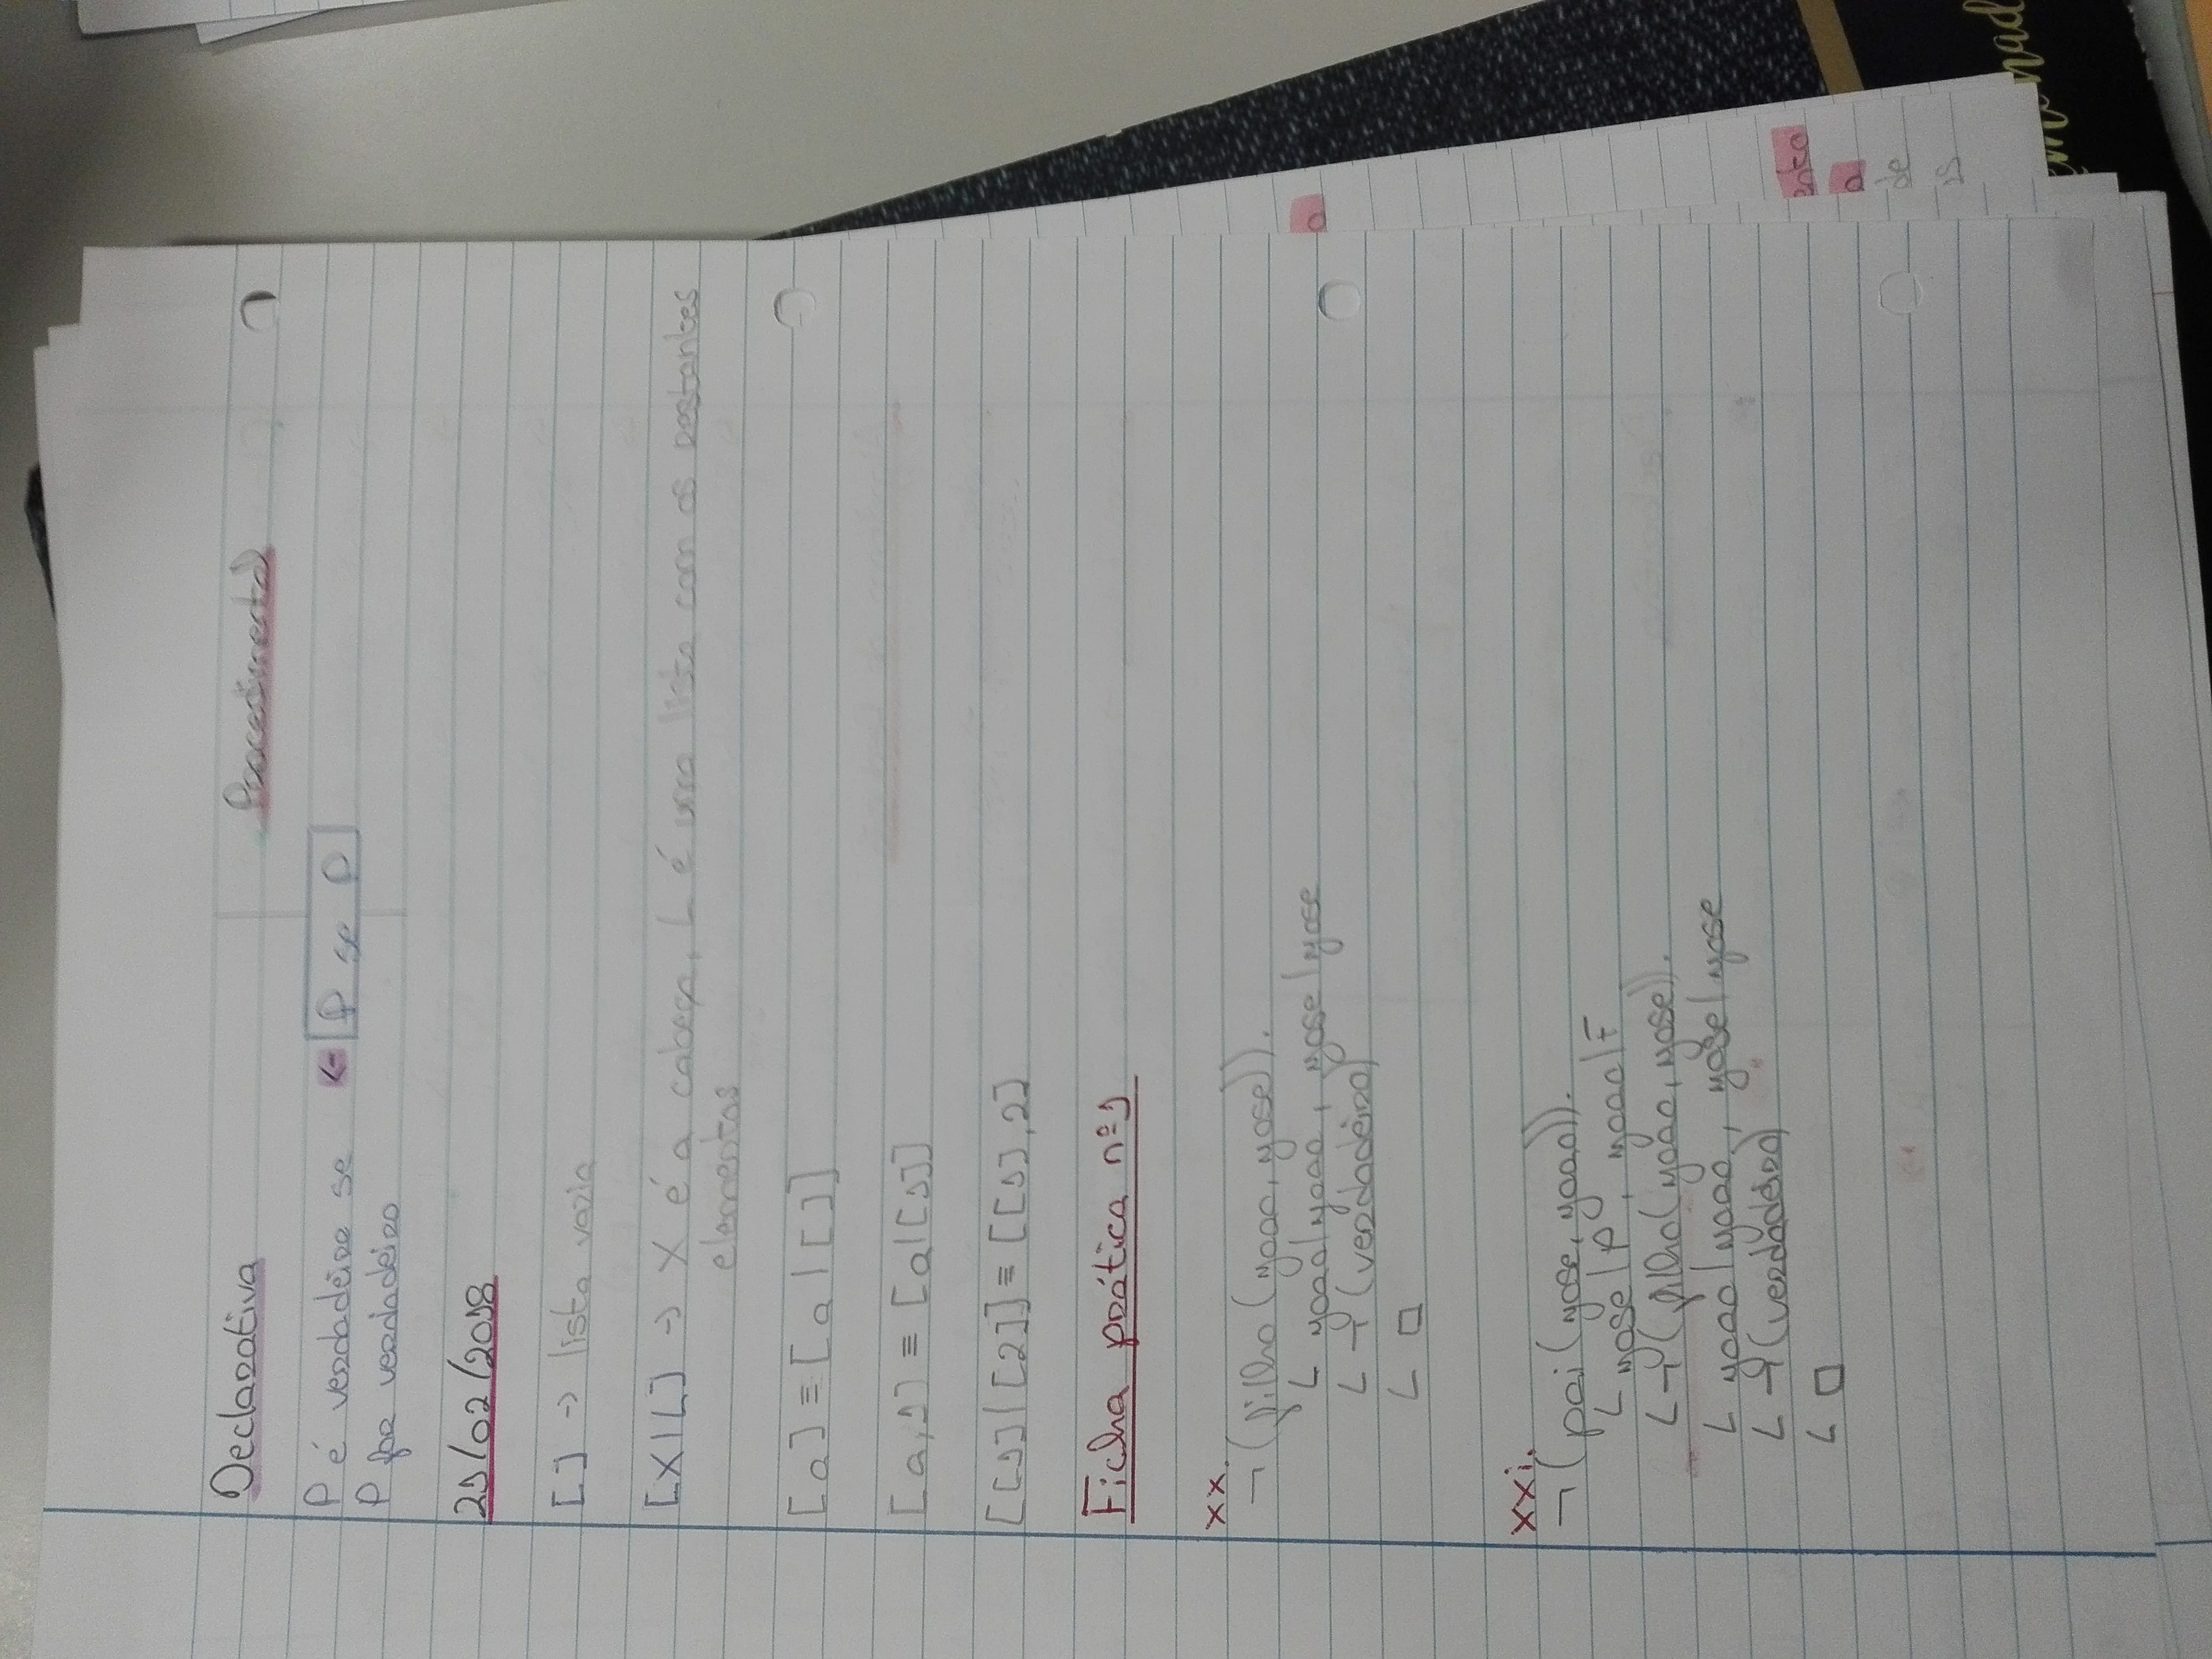 Declarativa Procedimental
P é verdadeiro se ← P se P
P for verdadeiro
21/02/2018
[] → lista vazia
[X|L] → X é a cabeça, L é uma lista com os restantes
elementos
[a] ≡ [a|[]]
[a,1] ≡ [a|[1]]
[[1]|[2]] ≡ [[1],2]
Ficha prática nº1
xx.
¬(filho(joao,jose)).
└ joao|joao, jose|jose
└ ¬(verdadeiro)
└ □
xxi.
¬(pai(jose,joao)).
└ jose|P, joao|F
└ ¬(filho(joao,jose)).
└ joao|joao, jose|jose
└ ¬(verdadeiro)
└ □